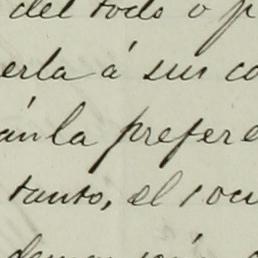 del todo o p
erla á sus co
ánla prefere
tanto, el